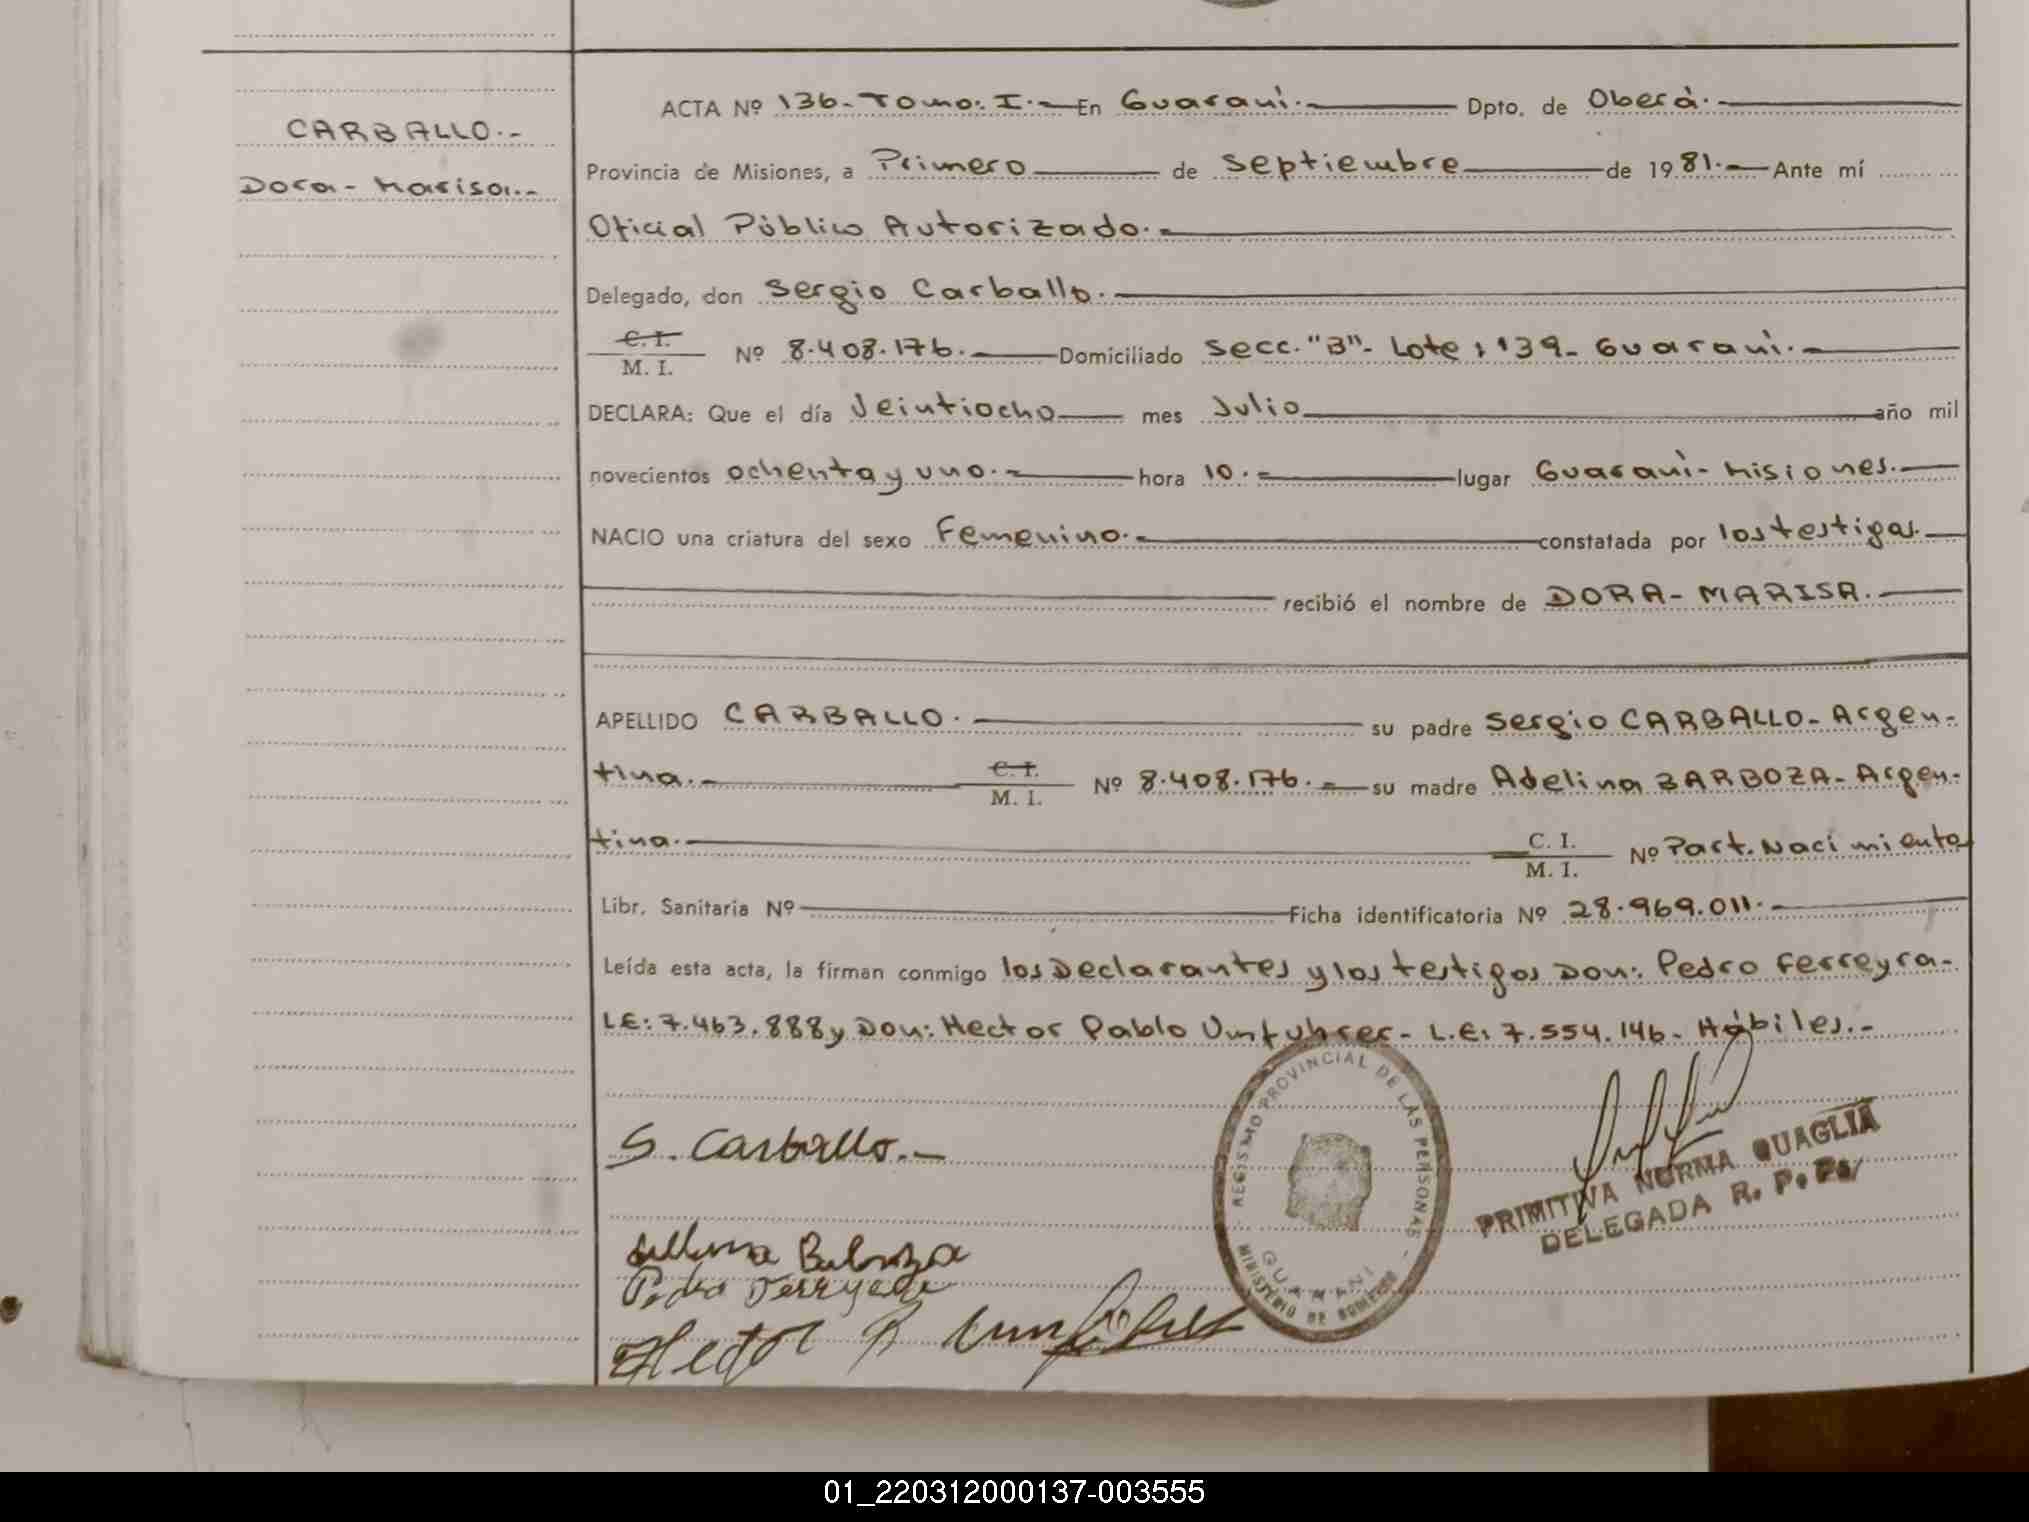 CARBALLO.-
Dora - Marisa.-
ACTA Nº 136.- Tomo: I.- En Guaraní.- Dpto. de Oberá.
Provincia de Misiones, a Primero de Septiembre de 1981.- Ante mí
Oficial Público Autorizado.-
Delegado, don Sergio Carballo.
C. I.
M. I. Nº 8.408.176.- Domiciliado Secc. "B"- Lote: 139- Guaraní.-
DECLARA: Que el día Veintiocho mes Julio año mil
novecientos ochenta y uno.- hora 10.- lugar Guaraní- Misiones.-
NACIO una criatura del sexo Femenino.- constatada por los testigos.-
recibió el nombre de DORA- MARISA.-
APELLIDO CARBALLO.- su padre Sergio CARBALLO- Argen-
tina.- C. I.
M. I. Nº 8.408.176.- su madre Adelina BARBOZA- Argen-
tina.- C. I.
M. I. Nº Part. Nacimiento
Libr. Sanitaria Nº Ficha identificatoria Nº 28.969.011.-
Leída esta acta, la firman conmigo los Declarantes y los testigos Don: Pedro Ferreyra-
LE: 7.463.888 y Don: Hector Pablo Umfuhrer- L.E: 7.554.146- Hábiles.-
S. Carballo.-
REGISTRO PROVINCIAL DE LAS PERSONAS -
GUARANI
MINISTERIO DE GOBIERNO
PRIMITIVA NORMA QUAGLIA
DELEGADA R. P. Ps/
Adelina Barboza
Pedro Ferreyra
Hector P. Umfuhrer
01_220312000137-003555